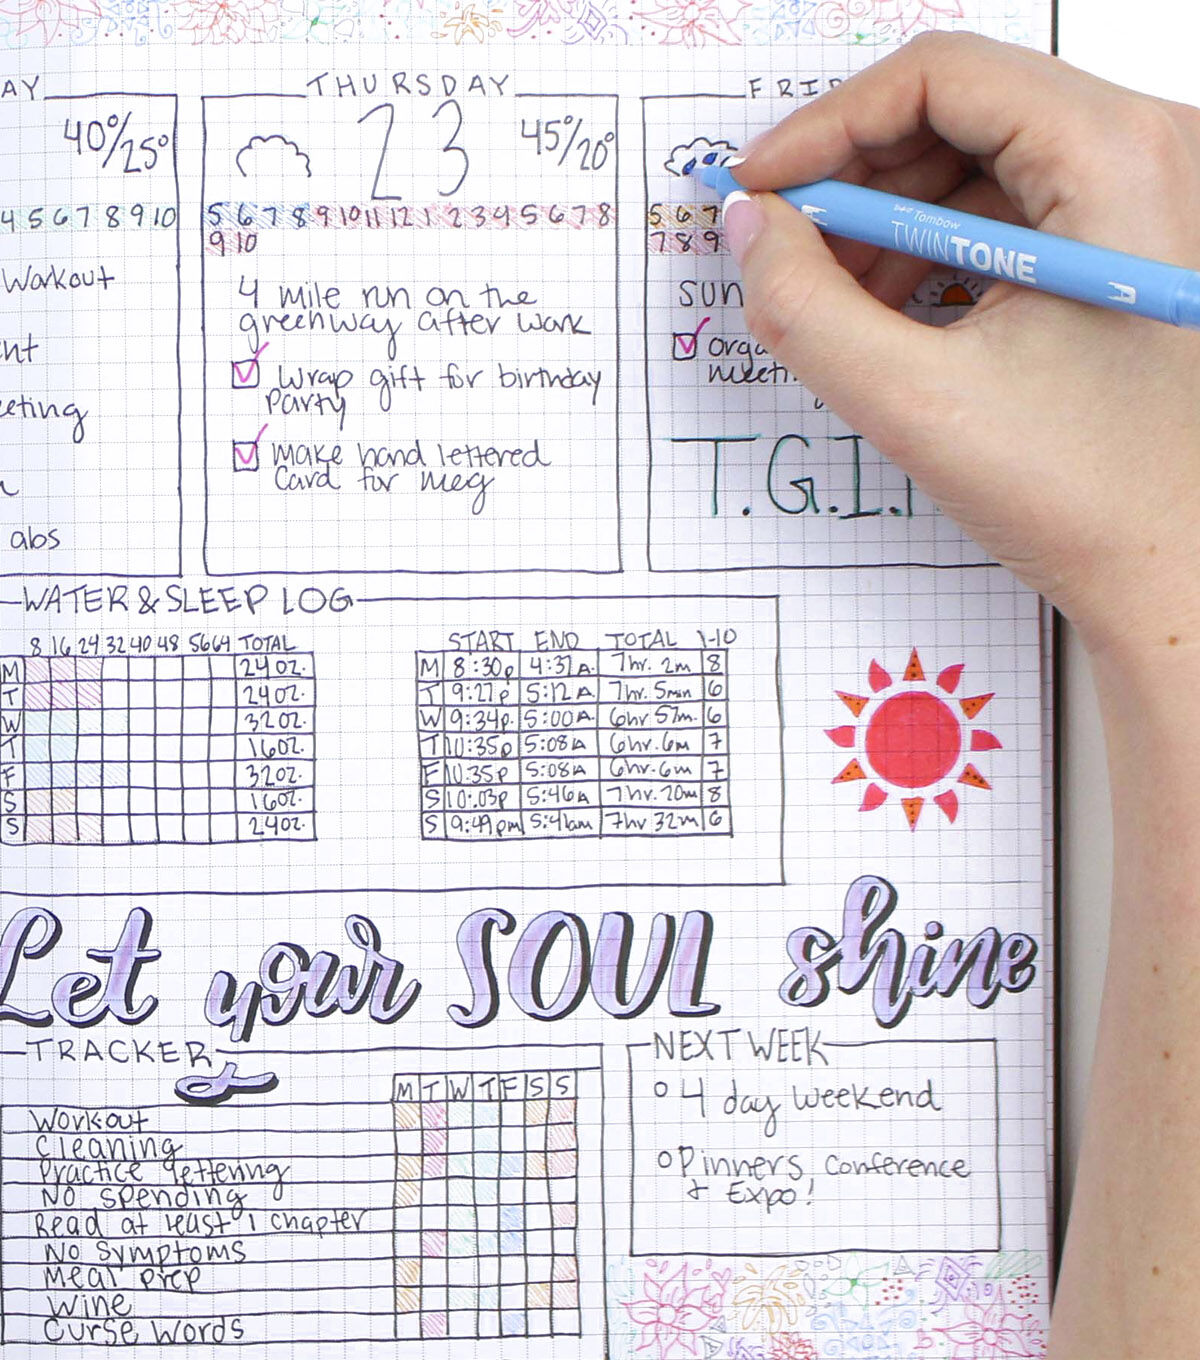 AY
40°/25°
4 5 6 7 8 9 10
Workout
nt
eeting
abs
THURSDAY
23
45°/20°
5 6 7 8 9 10 11 12 1 2 3 4 5 6 7 8
9 10
4 mile run on the
greenway after work
wrap gift for birthday
party
make hand lettered
card for meg
FRID
5 6 7
7 8 9
SUN
orga
meeti
T.G.I.
Tombow
TWINTONE
WATER & SLEEP LOG
8 16 24 32 40 48 56 64 TOTAL
M 24 oz.
T 24 oz.
W 32 oz.
T 16 oz.
F 32 oz.
S 16 oz.
S 24 oz.
START END TOTAL 1-10
M 8:30p 4:37A. 7hr. 2m 8
T 9:27p 5:12A. 7hr. 5min 6
W 9:34p. 5:00A. 6hr 57m. 6
T 10:35p 5:08A 6hr. 6m 7
F 10:35p 5:08A 6hr. 6m 7
S 10:03p 5:46A 7hr. 20m 8
S 9:49pm 5:41am 7hr 32m 6
Let your SOUL shine
TRACKER
M T W T F S S
Workout
Cleaning
Practice lettering
No spending
Read at least 1 chapter
No symptoms
Meal prep
Wine
Curse words
NEXT WEEK
4 day weekend
Pinners Conference
& Expo!